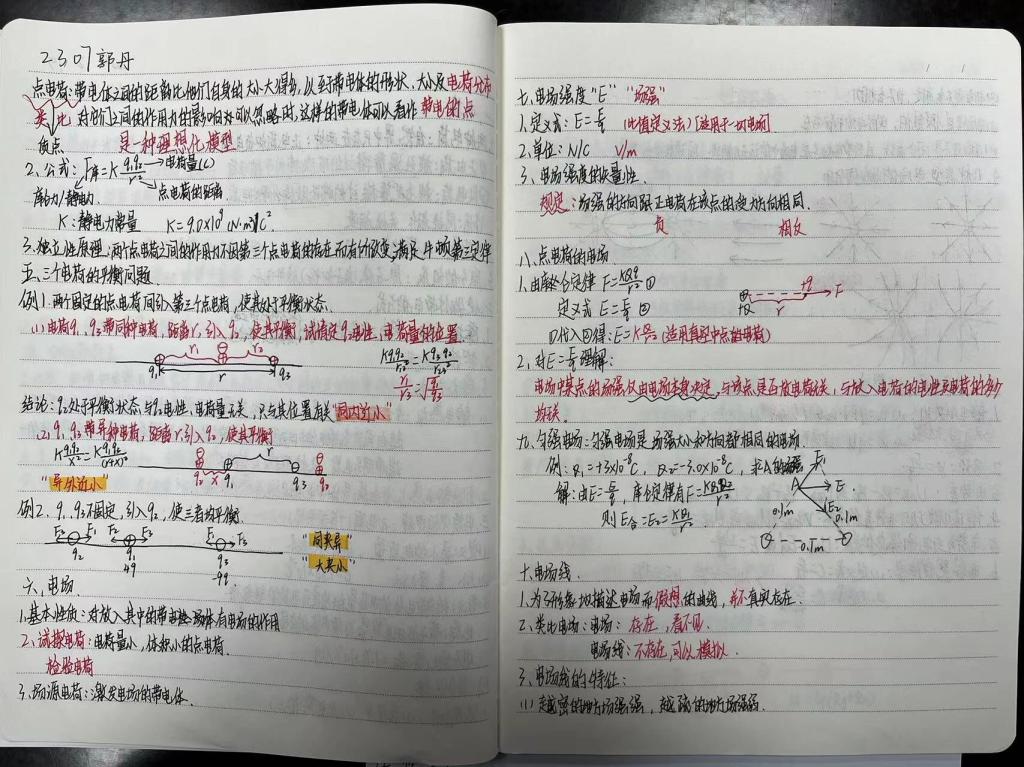 2307 郭丹
点电荷:带电体之间的距离比他们自身的大小大得多,以至于带电体的形状、大小及电荷分布
类比 对他们之间的作用力的影响可以忽略时,这样的带电体可以看作带电的点
质点 是一种理想化模型
2、公式:F库=K q₁q₂/r² 电荷量(C)
库仑力/静电力 点电荷的距离
K:静电力常量 K=9.0×10⁹ (N·m²)/C²
3、独立性原理:两个点电荷之间的作用力不因第三个点电荷的存在而有所改变,满足牛顿第三定律
五、三个电荷的平衡问题
例1、两个固定的点电荷间引入第三个点电荷,使其处于平衡状态
(1)电荷q₁、q₃带同种电荷,距离r,引入q₂,使其平衡,试确定q₂电性、电荷量的位置
r₁ r₂
q₁ r q₃
Kq₁q₂/r₁²=Kq₃q₂/r₂²
结论:q₂处于平衡状态与q₂电性、电荷量无关,只与其位置有关"同内近小"
(2)q₁、q₃带异种电荷,距离r,引入q₂,使其平衡
r
q₂ x q₁ q₃ q₂
"异外近小"
例2、q₁、q₃不固定,引入q₂,使三者均平衡.
F₂ F₁ F₂ F₃ F₁ F₃
q₂ q₁ q₃
4q -9q
"同夹异"
"大夹小"
六、电场
1、基本性质:对放入其中的带电体有电场的作用
2、试探电荷:电荷量小,体积小的点电荷.
检验电荷
3、场源电荷:激发电场的带电体.
七、电场强度"E" "场强"
1、定义式:E=F/q (比值定义法)[适用于一切电场]
2、单位:N/C V/m
3、电场强度的矢量性.
规定:场强的方向跟正电荷在该点的受力方向相同.
负 相反
八、点电荷的电场
1、由库仑定律 F=KQq/r² ①
定义式 E=F/q ②
+Q r +q F
①代入②得:E=KQ/r² (适用真空中点电荷)
2、对E=F/q理解:
电场中某点的场强仅由电场本身决定,与该点是否放电荷无关,与放入电荷的电性及电荷的多少
均无关.
九、匀强电场:匀强电场是场强大小和方向都相同的电场.
例:Q₁=+3×10⁻⁸C,Q₂=-3.0×10⁻⁸C,求A的场强
解:由E=F/q,库仑定律有F=KQ₁Q₂/r²
则E合=E₂=KQ₁/r²
E₁
A E
E₂
0.1m 0.1m
0.1m
十、电场线.
1、为了形象地描述电场而假想的曲线,并不真实存在.
2、类比电场:电场:存在,看不见.
电场线:不存在,可以模拟.
3、电场线的特征:
(1)越密的地方场强强,越疏的地方场强弱.